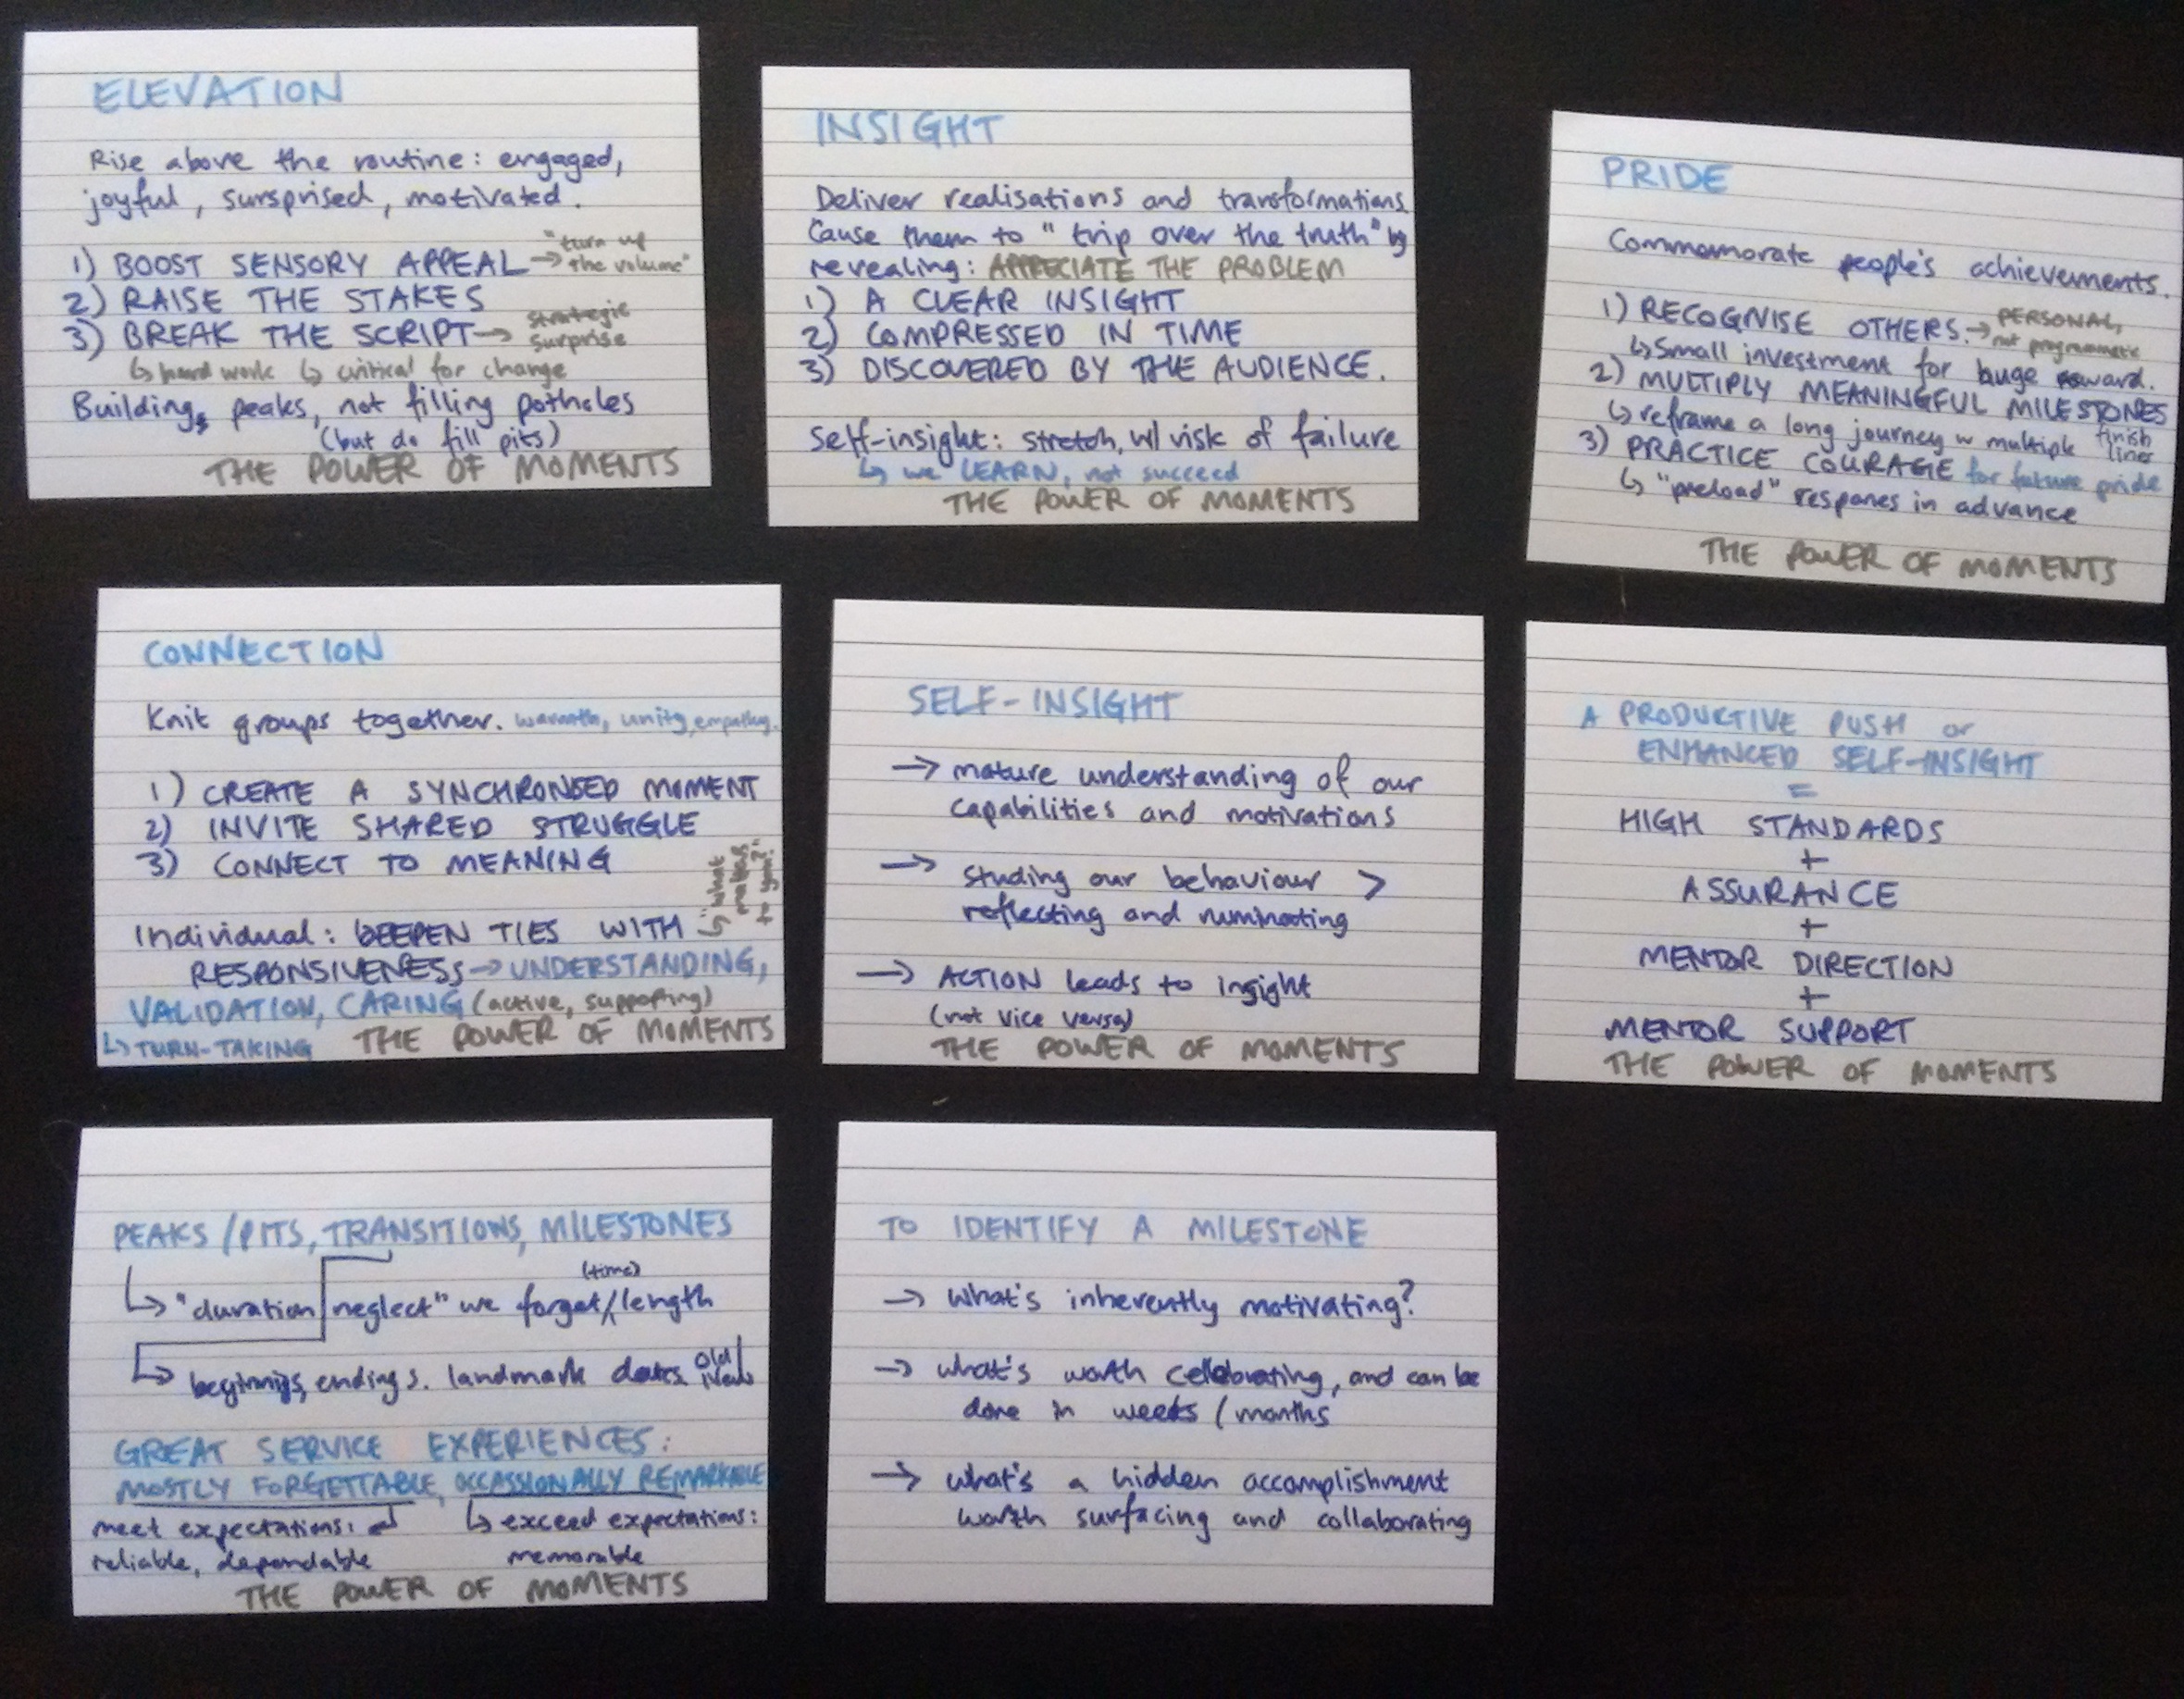 ELEVATION
Rise above the routine: engaged,
joyful, sursprised, motivated.
1) BOOST SENSORY APPEAL → "turn up
the volume"
2) RAISE THE STAKES
3) BREAK THE SCRIPT → strategic
surprise
↳ hard work ↳ critical for change
Buildings peaks, not filling potholes
(but do fill pits)
THE POWER OF MOMENTS
INSIGHT
Deliver realisations and transformations
Cause them to "trip over the truth" by
revealing: APPRECIATE THE PROBLEM
1) A CLEAR INSIGHT
2) COMPRESSED IN TIME
3) DISCOVERED BY THE AUDIENCE.
Self-insight: stretch, w/ risk of failure
↳ we LEARN, not succeed
THE POWER OF MOMENTS
PRIDE
Commomorate people's achievements.
1) RECOGNISE OTHERS. → PERSONAL,
not programmatic
↳ Small investment for huge reward.
2) MULTIPLY MEANINGFUL MILESTONES
↳ reframe a long journey w multiple finish
lines
3) PRACTICE COURAGE for future pride
↳ "preload" respones in advance
THE POWER OF MOMENTS
CONNECTION
Knit groups together. warmth, unity, empathy.
1) CREATE A SYNCHRONISED MOMENT
2) INVITE SHARED STRUGGLE
3) CONNECT TO MEANING
Individual: DEEPEN TIES WITH ↳ "what
matters
to you?"
RESPONSIVENESS → UNDERSTANDING,
VALIDATION, CARING (active, supporting)
↳ TURN-TAKING
THE POWER OF MOMENTS
SELF-INSIGHT
→ mature understanding of our
capabilities and motivations
→ Studing our behaviour >
reflecting and ruminating
→ ACTION leads to insight
(not vice versa)
THE POWER OF MOMENTS
A PRODUCTIVE PUSH or
ENHANCED SELF-INSIGHT
=
HIGH STANDARDS
+
ASSURANCE
+
MENTOR DIRECTION
+
MENTOR SUPPORT
THE POWER OF MOMENTS
PEAKS/PITS, TRANSITIONS, MILESTONES
(time)
↳ "duration neglect" we forget/length
↳ beginnigs, endings. landmark dates. Old/
New
GREAT SERVICE EXPERIENCES:
MOSTLY FORGETTABLE, OCCASSIONALLY REMARKABLE
meet expectations: ↲ ↳ exceed expectations:
reliable, dependable memorable
THE POWER OF MOMENTS
TO IDENTIFY A MILESTONE
→ What's inherently motivating?
→ what's worth celebrating, and can be
done in weeks / months
→ what's a hidden accomplishment
worth surfacing and collaborating